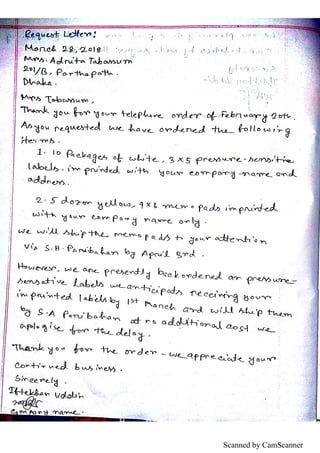 Request Letter:
March 28, 2018
Mrs. Adnita Tabassum
201/B, Parthapath.
Dhaka.
Mrs Tabassum,
Thank you for your telephne order of February 20th.
As you requested we have ordered the following
items.
1. 10 Packages of white, 3 x 5 pressure-sensitive
labels. imprinted with your company-name and
address.
2. 5 dozon yellow, 4 x 6 memo pads imprinted
with your company name only.
we will ship the memo pads to your attention
via S.H. Paribahan by April 3rd.
However, we are presently backordered on pressure-
sensative Labels we anticipate receiving your
imprinted labels by 1st March and will ship them
by S.A Paribahan at no additional cost we
apologise for the delay.
Thank you for the order - we appreciate your
continued business.
Sincerely.
Iftekhar Uddin
Company name.
Scanned by CamScanner